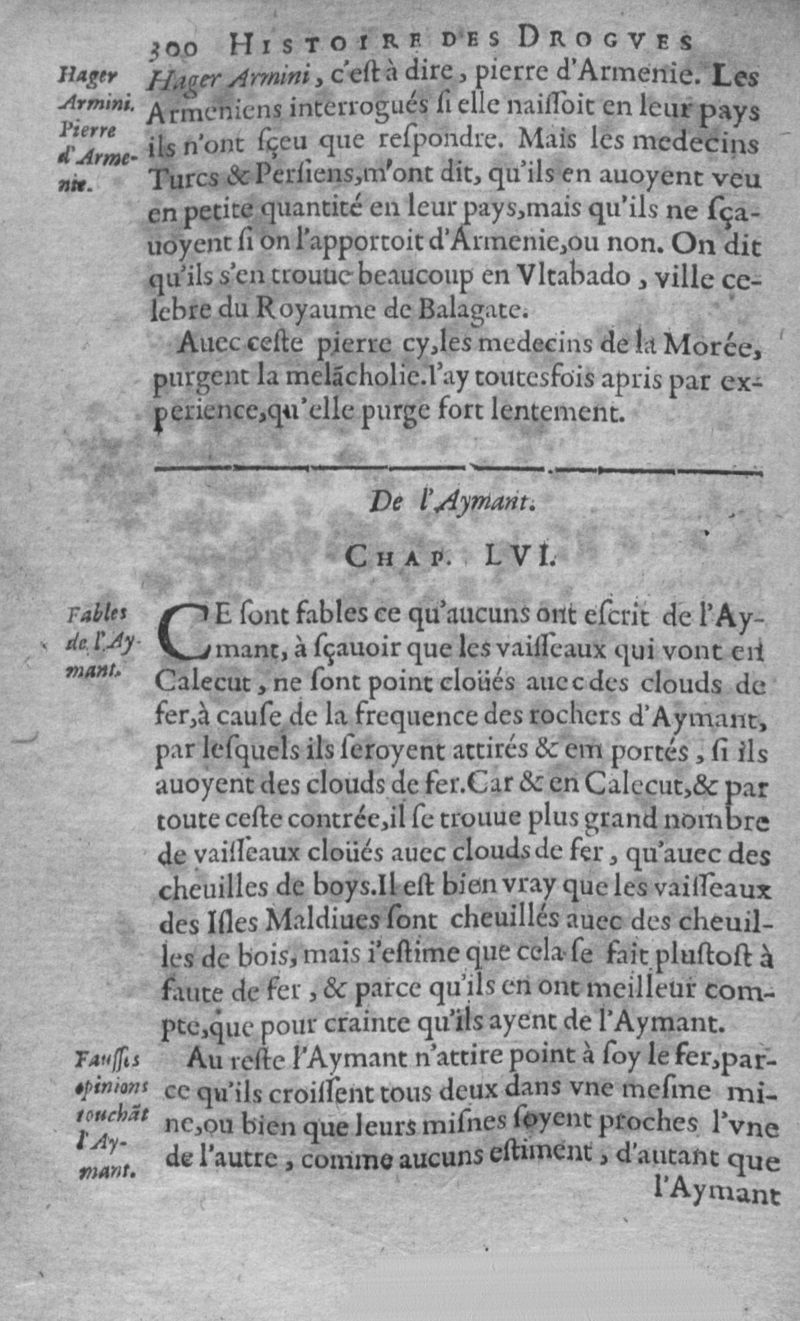 300 HISTOIRE DES DROGVES
Hager
Armini.
Pierre
d'Arme-
nie.
Hager Armini, c'eſt à dire, pierre d'Armenie. Les
Armeniens interrogués ſi elle naiſſoit en leur pays
ils n'ont ſçeu que reſpondre. Mais les medecins
Turcs & Perſiens,m'ont dit, qu'ils en auoyent veu
en petite quantité en leur pays,mais qu'ils ne ſça-
uoyent ſi on l'apportoit d'Armenie,ou non. On dit
qu'ils s'en trouue beaucoup en Vltabado, ville ce-
lebre du Royaume de Balagate.
Auec ceſte pierre cy,les medecins de la Morée,
purgent la melãcholie.I'ay toutesfois apris par ex-
perience,qu'elle purge fort lentement.
De l'Aymant.
CHAP. LVI.
Fables
de l'Ay-
mant.
CE ſont fables ce qu'aucuns ont eſcrit de l'Ay-
mant, à ſçauoir que les vaiſſeaux qui vont en
Calecut, ne ſont point cloüés auec des clouds de
fer,à cauſe de la frequence des rochers d'Aymant,
par leſquels ils ſeroyent attirés & em portés, ſi ils
auoyent des clouds de fer.Car & en Calecut,& par
toute ceſte contrée,il ſe trouue plus grand nombre
de vaiſſeaux cloüés auec clouds de fer, qu'auec des
cheuilles de boys.Il eſt bien vray que les vaiſſeaux
des Iſles Maldiues ſont cheuillés auec des cheuil-
les de bois, mais i'eſtime que cela ſe fait pluſtoſt à
faute de fer, & parce qu'ils en ont meilleur com-
pte,que pour crainte qu'ils ayent de l'Aymant.
Fauſſes
opinions
touchãt
l'Ay-
mant.
Au reſte l'Aymant n'attire point à ſoy le fer,par-
ce qu'ils croiſſent tous deux dans vne meſme mi-
ne,ou bien que leurs miſnes ſoyent proches l'vne
de l'autre, comme aucuns eſtiment, d'autant que
l'Aymant